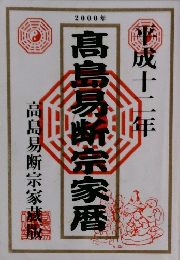 2000年
平成十二年
高島易断宗家暦
高島易断宗家蔵版